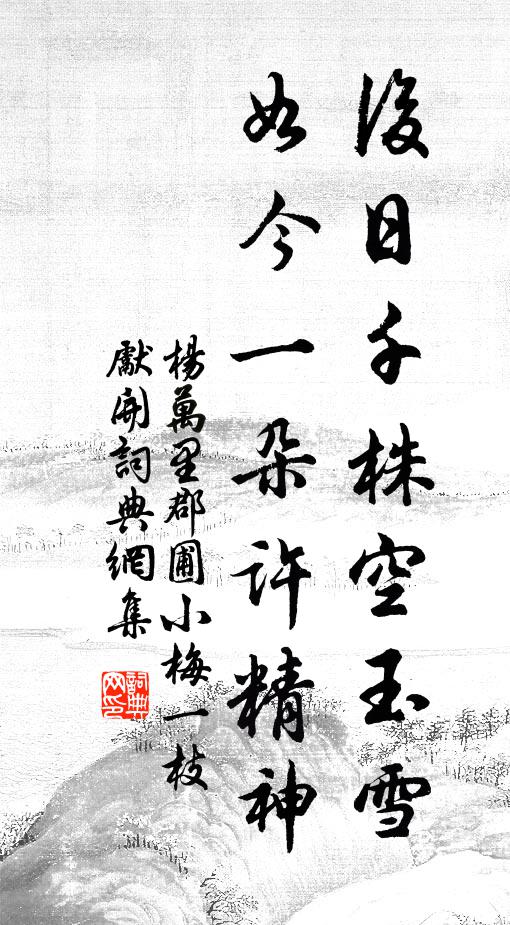 後日千株空玉雪
如今一朵許精神
楊萬里郡圃小梅一枝
獻開詞典網集
詞典
网印